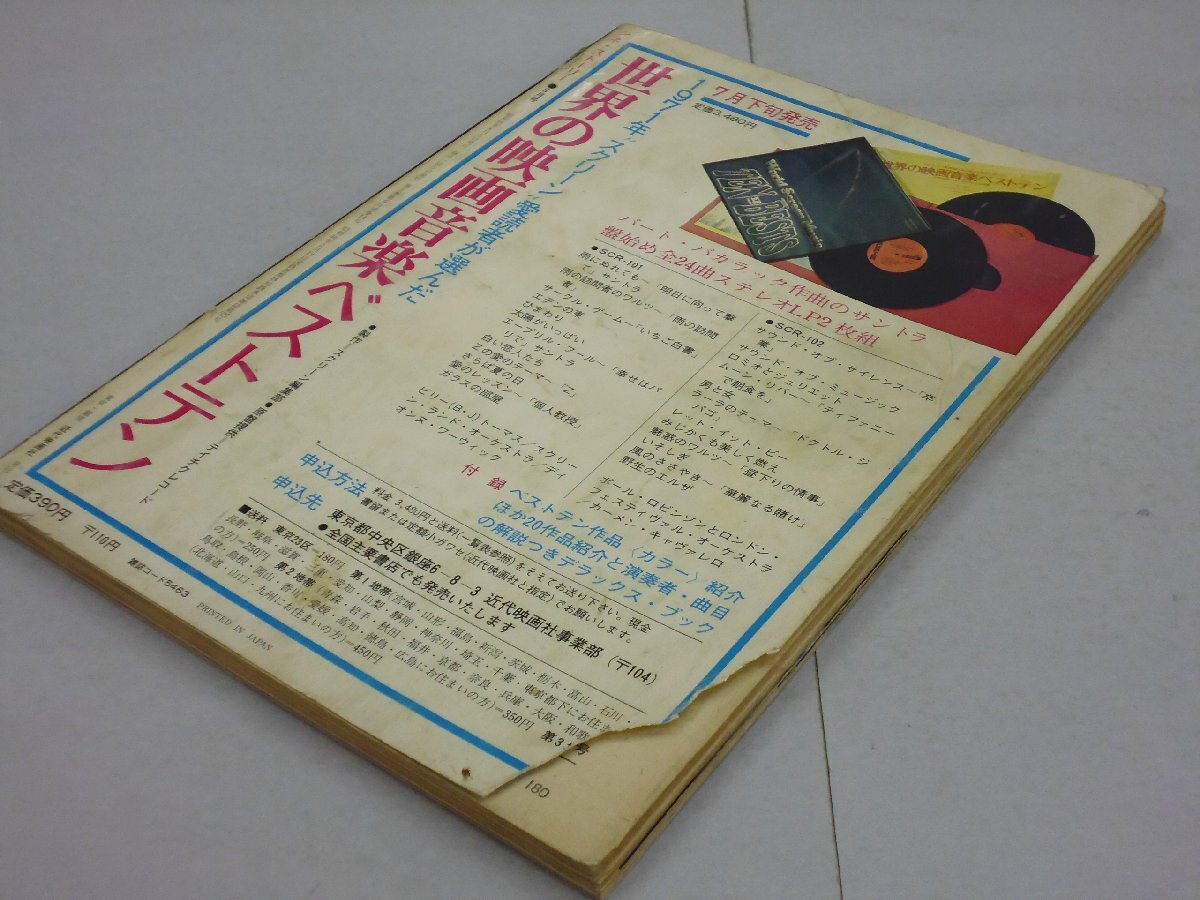 7月下旬発売
定価3,480円
1971年"スクリーン"愛読者が選んだ
世界の映画音楽ベストテン
世界の映画音楽ベストテン
TEN BESTS
バート・バカラック作曲のサントラ
盤始め全24曲ステレオLP2枚組
●SCR-101
雨にぬれても〜「明日に向って撃
て」サントラ
雨の訪問者のワルツ〜「雨の訪問
者」
サークル・ゲーム〜「いちご白書」
エデンの東
ひまわり
太陽がいっぱい
エープリル・フール〜「幸せはパ
リで」サントラ
白い恋人たち
Zの愛のテーマ〜「Z」
さらば夏の日
愛のレッスン〜「個人教授」
ガラスの部屋
ビリー(B・J)トーマス/スクリー
ン・ランド・オーケストラ/ディ
オンヌ・ワーウィック
●SCR-102
サウンド・オブ・サイレンス〜「卒
業」
サウンド・オブ・ミュージック
ロミオとジュリエット
ムーン・リバー〜「ティファニー
で朝食を」
男と女
ララのテーマ〜「ドクトル・ジ
バゴ」
レット・イット・ビー
みじかくも美しく燃え
魅惑のワルツ〜「昼下りの情事」
いそしぎ
風のささやき〜「華麗なる賭け」
野生のエルザ
ポール・ロビンソンとロンドン・
フェスティヴァル・オーケストラ
/カーメン・キャヴァレロ
付録 ベストテン作品〈カラー〉紹介
ほか20作品紹介と演奏者・曲目
の解説つきデラックス・ブック
●製作―スクリーン編集部 ●原盤提供―テイチクレコード
申込方法 料金3,480円と送料(一覧表参照)をそえてお送り下さい。現金
書留または定額小ガワセ(近代映画社と指定)でお願いします。
申込先 東京都中央区銀座6-8-3 近代映画社事業部(〒104)
●全国主要書店でも発売いたします
■送料 東京23区=180円 第1地帯(宮城・山形・福島・新潟・茨城・栃木・富山・石川・
長野・岐阜・滋賀・三重・愛知・山梨・静岡・神奈川・埼玉・千葉・東京都下にお住
の方)=250円 第2地帯(青森・岩手・秋田・福井・京都・奈良・兵庫・大阪・和歌
鳥取・島根・岡山・香川・愛媛・高知・徳島・広島にお住まいの方)=350円 第3
号
(北海道・山口・九州にお住まいの方)=450円
定価390円 〒110円 雑誌コード5463 PRINTED IN JAPAN
180